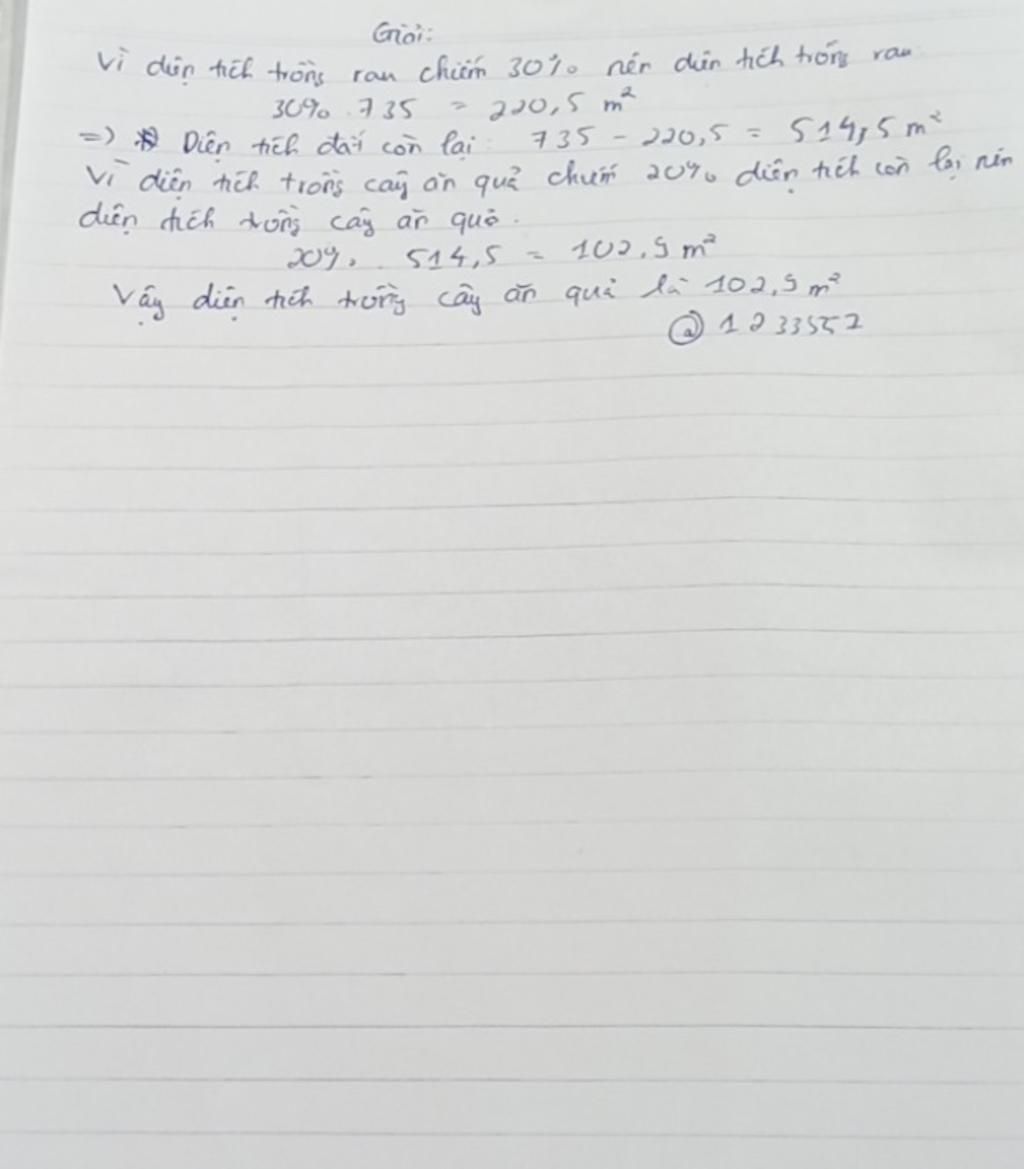 Giải:
Vì diện tích trồng rau chiếm 30% nên diện tích trồng rau
30% . 735 = 220,5 m²
=> Diện tích đất còn lại: 735 - 220,5 = 514,5 m²
Vì diện tích trồng cây ăn quả chiếm 20% diện tích còn lại nên
diện tích trồng cây ăn quả.
20% . 514,5 = 102,9 m²
Vậy diện tích trồng cây ăn quả là 102,9 m²
@1233557